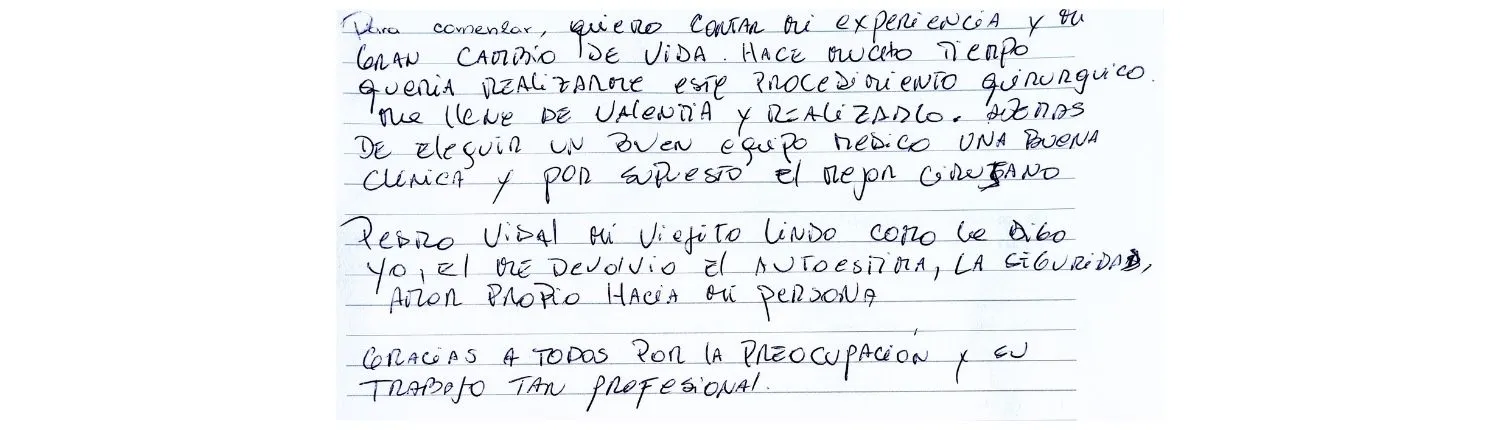 Para comenzar, quiero contar mi experiencia y mi
GRAN CAMBIO DE VIDA. HACE mucho Tiempo
queria REALIZARME este PROCEDIMIENTO quirurguico.
me llene DE VALENTIA y REALIZARLO. ADEMAS
DE Eleguir UN BUEN equipo MEDICO UNA BUENA
CLINICA y POR SUPUESTO El mejor CIRUJANO
PEDRO VIDAl mi Viejito LINDO COMO le Digo
yo, El ME DEVOLVIO El AUTOESTIMA, LA SEGURIDAD,
AMOR PROPIO HACIA mi PERSONA
GRACIAS A TODOS POR LA PREOCUPACIÓN y SU
TRABAJO TAN PROFESIONAL.